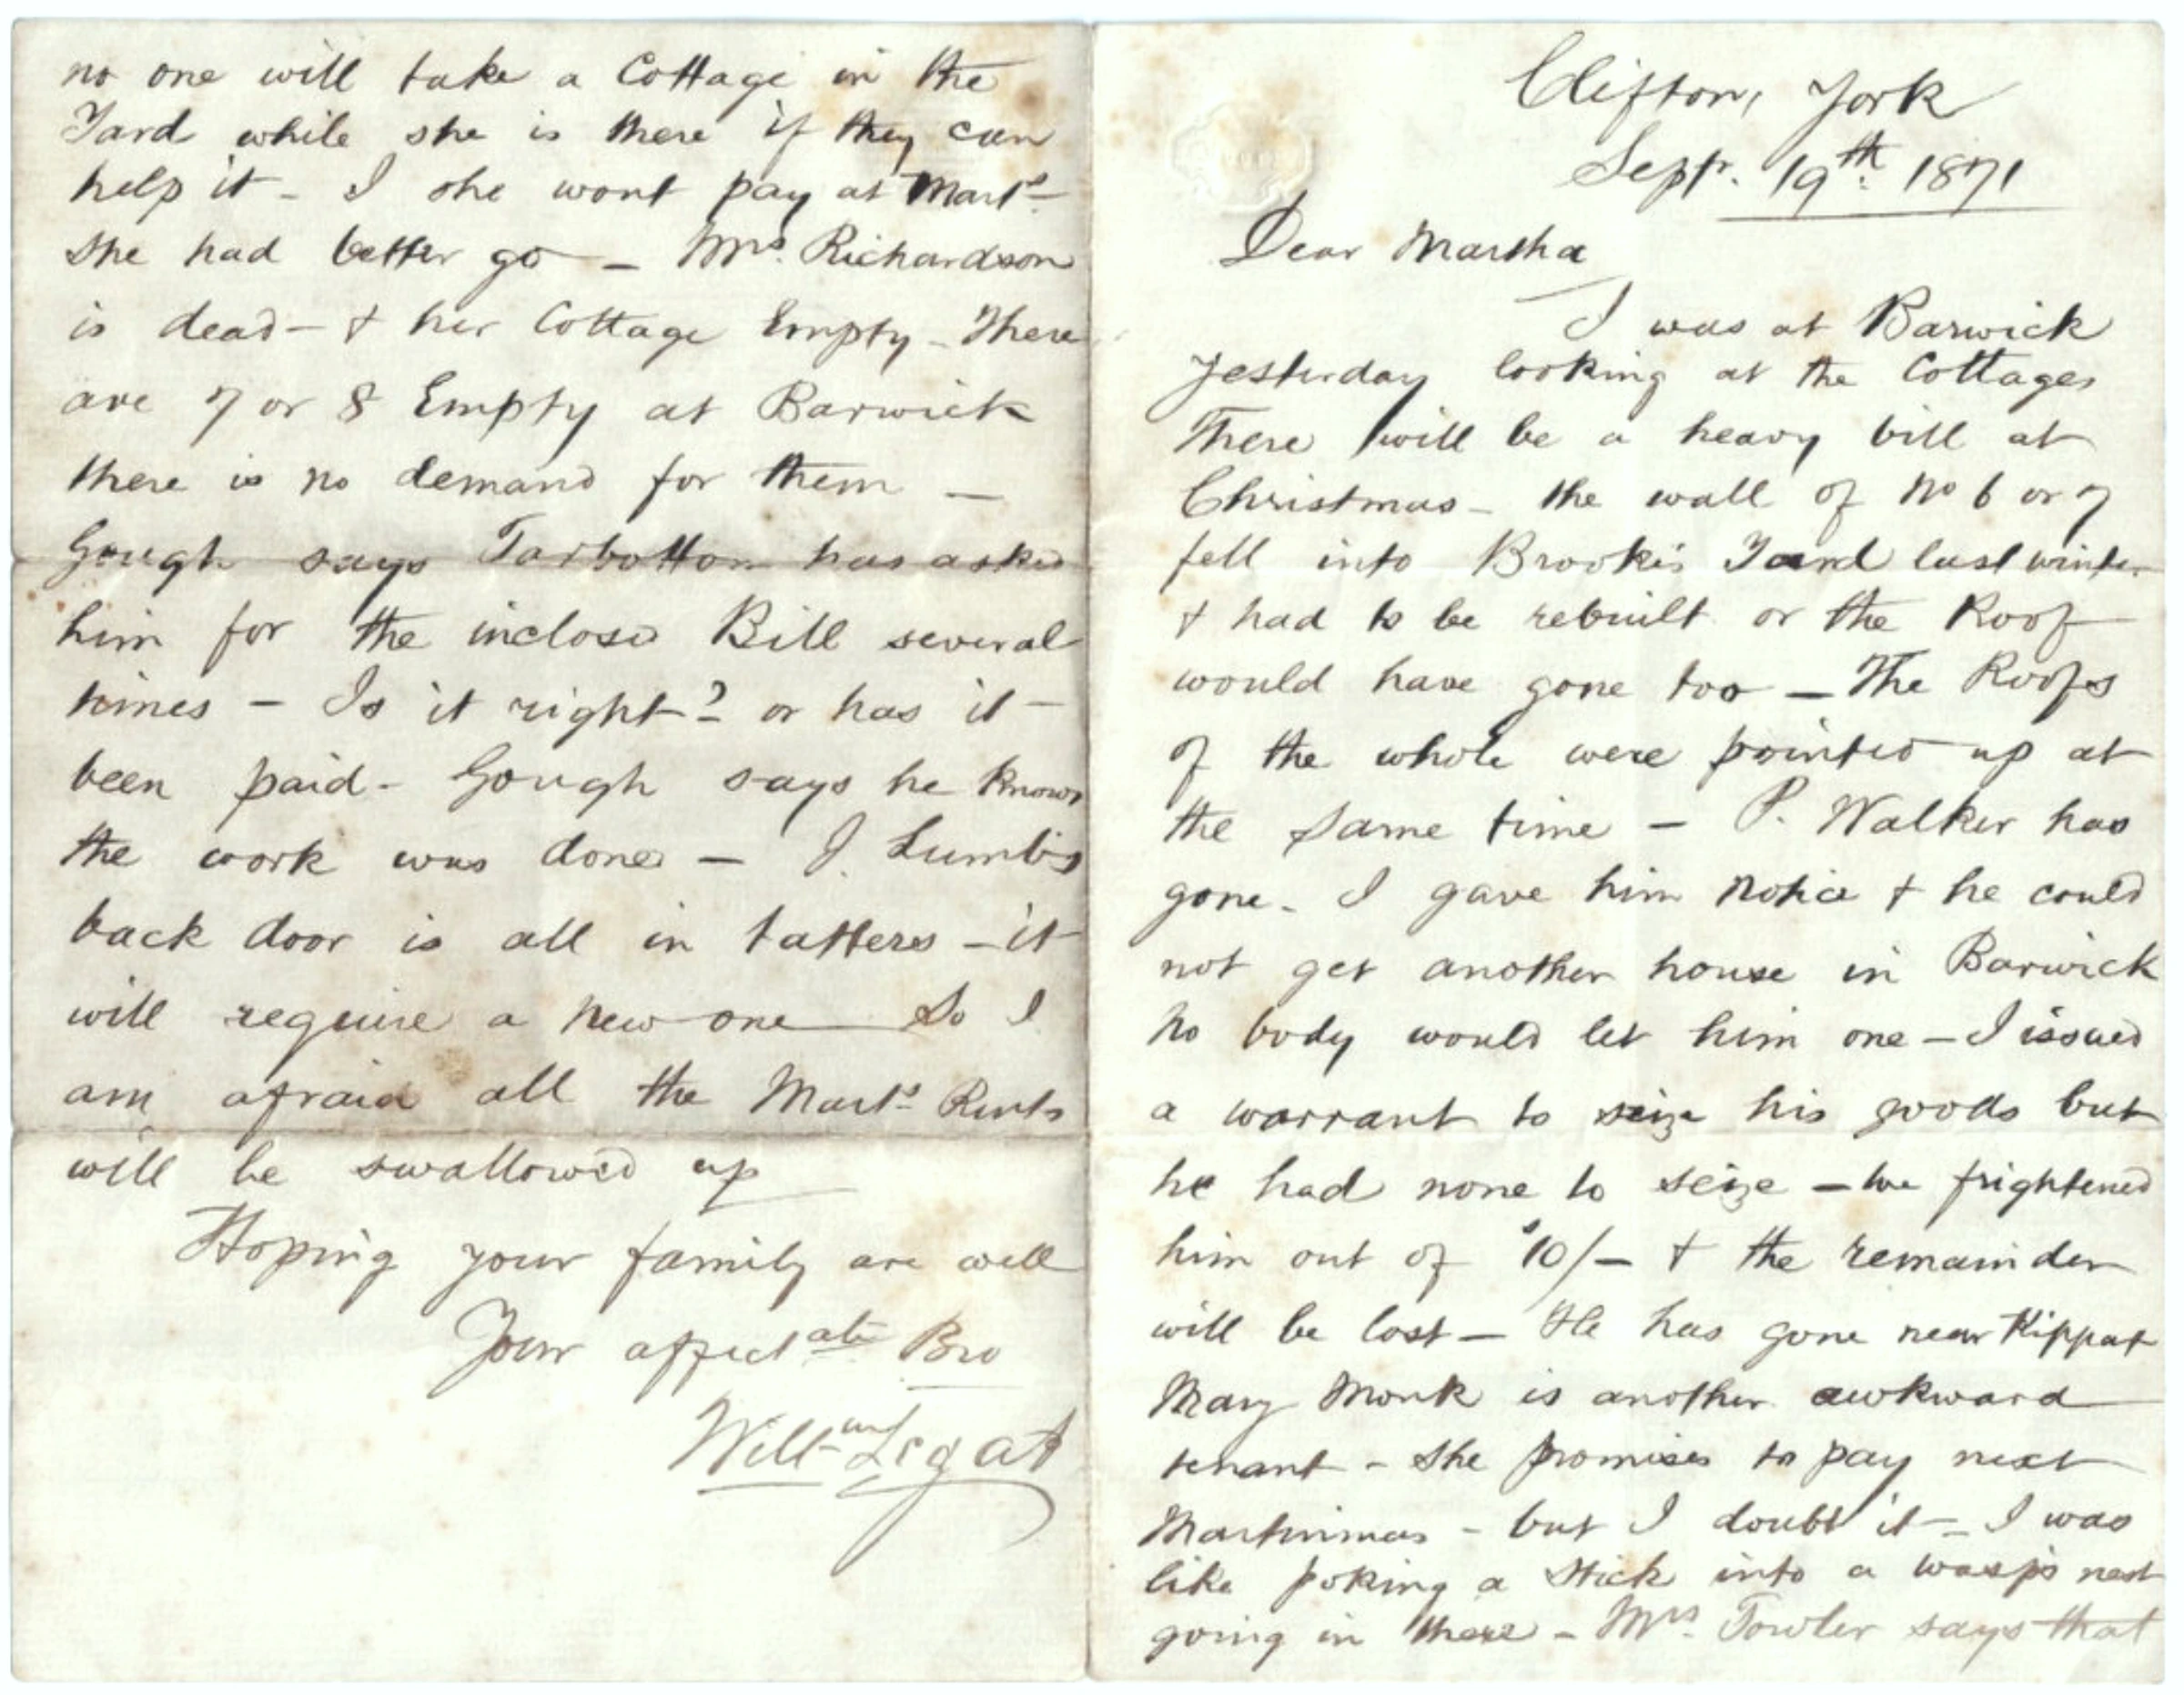 Clifton, York
Septr. 19th. 1871
Dear Martha
I was at Barwick
yesterday looking at the Cottages
There will be a heavy bill at
Christmas - the wall of No 6 or 7
fell into Brooke's Yard last winter
& had to be rebuilt or the Roof
would have gone too - The Roofs
of the whole were pointed up at
the same time - P. Walker has
gone - I gave him Notice & he could
not get another house in Barwick
no body would let him one - I issued
a warrant to seize his goods but
he had none to seize - we frightened
him out of 10/- & the remainder
will be lost - He has gone near Kippax
Mary Monk is another awkward
tenant - She promises to pay next
Martinmas - but I doubt it - I was
like poking a Stick into a wasp's nest
going in there - Mrs. Towler says that
no one will take a Cottage in the
Yard while she is there if they can
help it - I she wont pay at Marts.
she had better go - Mrs. Richardson
is dead - & her Cottage Empty - There
are 7 or 8 Empty at Barwick
there is no demand for them -
Gough says Tarbotton has asked
him for the inclosed Bill several
times - Is it right? or has it
been paid - Gough says he knows
the work was done - J. Lumb's
back door is all in tatters - it
will require a new one So I
am afraid all the Marts. Rents
will be swallowed up
Hoping your family are well
Your affectate Bro
Willm Legat